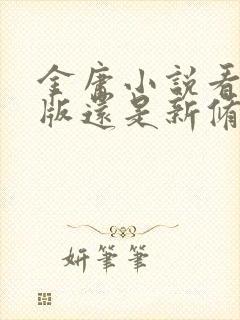 金庸小說看
版還是新修
妍筆筆